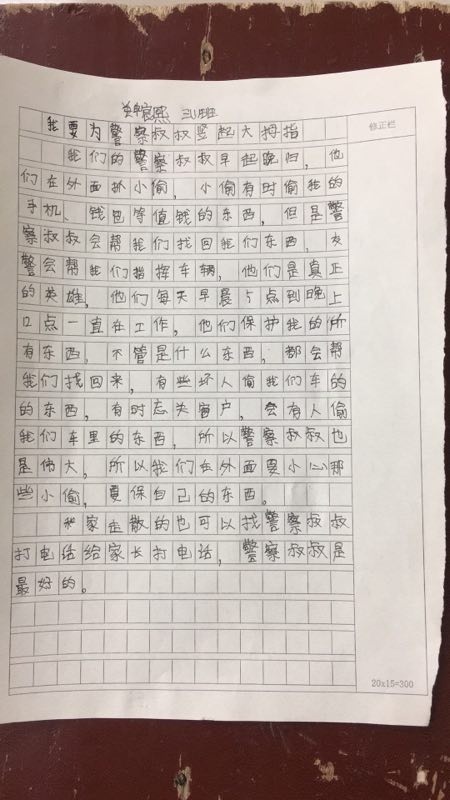 宸熙 三(1)班
我要为警察叔叔竖起大拇指
修正栏
我们的警察叔叔早起晚归，他
们在外面抓小偷，小偷有时偷我的
手机、钱包等值钱的东西，但是警
察叔叔会帮我们找回我们东西，交
警会帮我们指挥车辆，他们是真正
的英雄，他们每天早晨5点到晚上
12点一直在工作，他们保护我的所
有东西，不管是什么东西，都会帮
我们找回来，有些坏人偷我们车的
的东西，有时忘关窗户，会有人偷
我们车里的东西，所以警察叔叔也
是伟大，所以我们在外面要小心那
些小偷，要保自己的东西。
我家走散的也可以找警察叔叔
打电话给家长打电话，警察叔叔是
最好的。
20x15=300